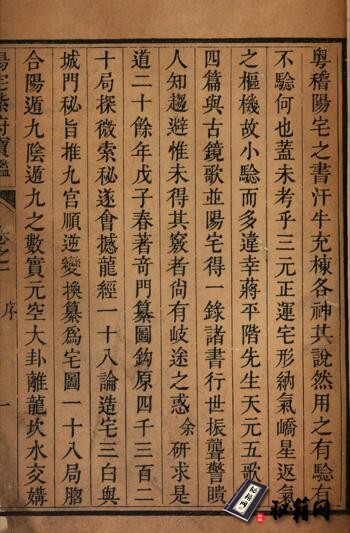 粵稽陽宅之書汗牛充棟各神其說然用之有驗有
不驗何也蓋未考乎三元正運宅形納氣嶠星返氣
之樞機故小驗而多違幸蔣平階先生天元五歌
四篇與古鏡歌並陽宅得一錄諸書行世振聾警聵
人知趨避惟未得其竅者尙有歧途之惑余研求是
道二十餘年戊子春著竒門纂圖鈎原四千三百二
十局探微索秘遂會撼龍經一十八論造宅三白與
城門秘旨推九宮順逆變換纂爲宅圖一十八局脗
合陽遁九陰遁九之數實元空大卦離龍坎水交媾
陽宅紫府寶鑑
卷之一
序
一
秘籍网
秘籍网